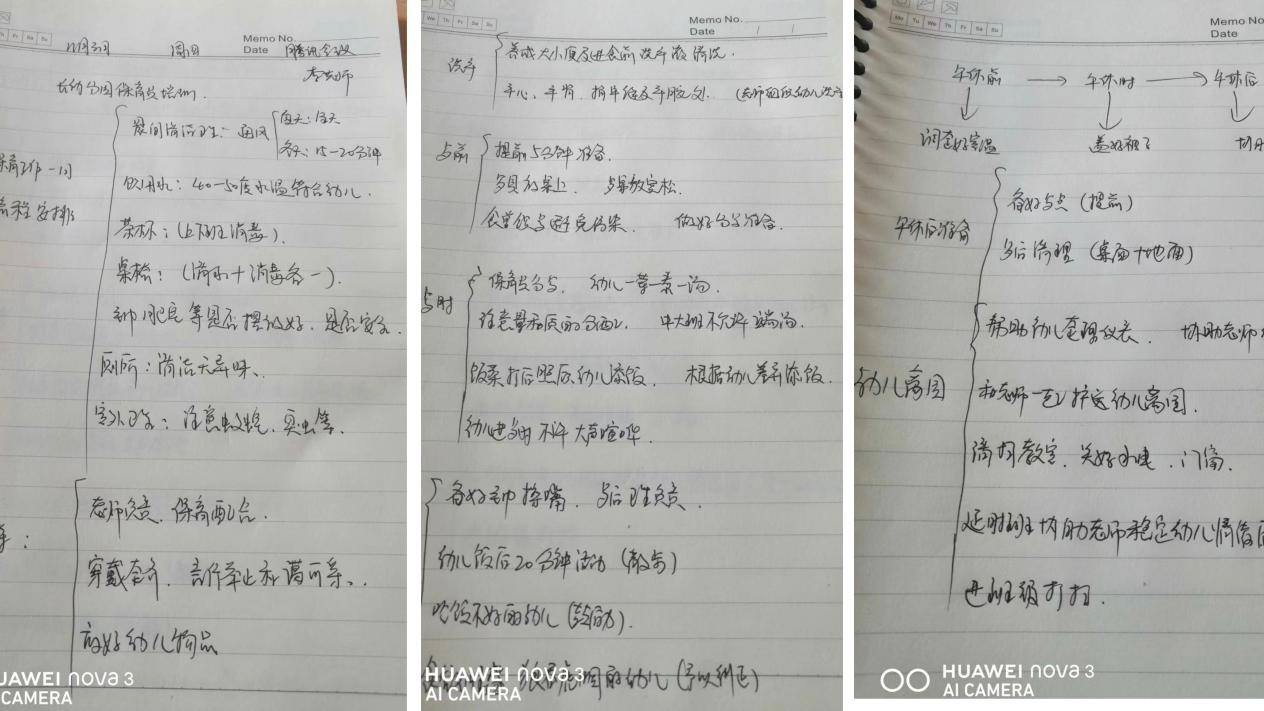 Th Fr Sa Su
Memo No.
Date
11月3日 周日 腾讯会议
李老师
长幼分园保育员培训.
保育工作一日
流程安排
夜间清洁卫生: 通风
每天: 全天
冬天: 15-20分钟
饮用水: 40-50度水温符合幼儿.
茶杯: (上下班消毒).
桌椅: (清水+消毒各一).
毛巾 肥皂等是否摆放好. 是否安全.
厕所: 清洁无异味.
室外卫生: 注意蚊蝇. 臭虫等.
老师负责. 保育配合.
穿戴整齐. 言行举止和蔼可亲.
放好幼儿物品
HUAWEI nova 3
AI CAMERA
We Th Fr Sa Su
Memo No.
Date / /
洗手
养成大小便及进食前洗手液清洗.
手心、手背、指缝及手腕处. (老师组织幼儿洗手
餐前
提前5分钟准备.
餐具 桌上. 餐桌放宽松.
食堂饭与 避免污染. 做好分餐准备.
餐时
保育员分餐. 幼儿一荤一素一汤.
注意量和质的分配. 中大班不允许端汤.
饭菜打后照应幼儿添饭. 根据幼儿差异添饭.
幼儿进餐时不许大声喧哗.
备好毛巾擦嘴. 餐后卫生负责.
幼儿饭后20分钟活动 (散步)
吃饭不好的幼儿 (鼓励).
的幼儿 (予以纠正)
HUAWEI nova 3
AI CAMERA
Mo Tu We Th Fr Sa Su
Memo No.
Date
午休前 → 午休时 → 午休后
调整好室温 盖好被子 协助
午休后准备
备好餐点 (提前)
餐后清理 (桌面+地面)
幼儿离园
帮助幼儿整理仪表. 协助老师
和老师一起护送幼儿离园.
清扫教室. 关好水电. 门窗.
延时班协助老师稳定幼儿情绪后
进班级打扫.
HUAWEI nova 3
AI CAMERA